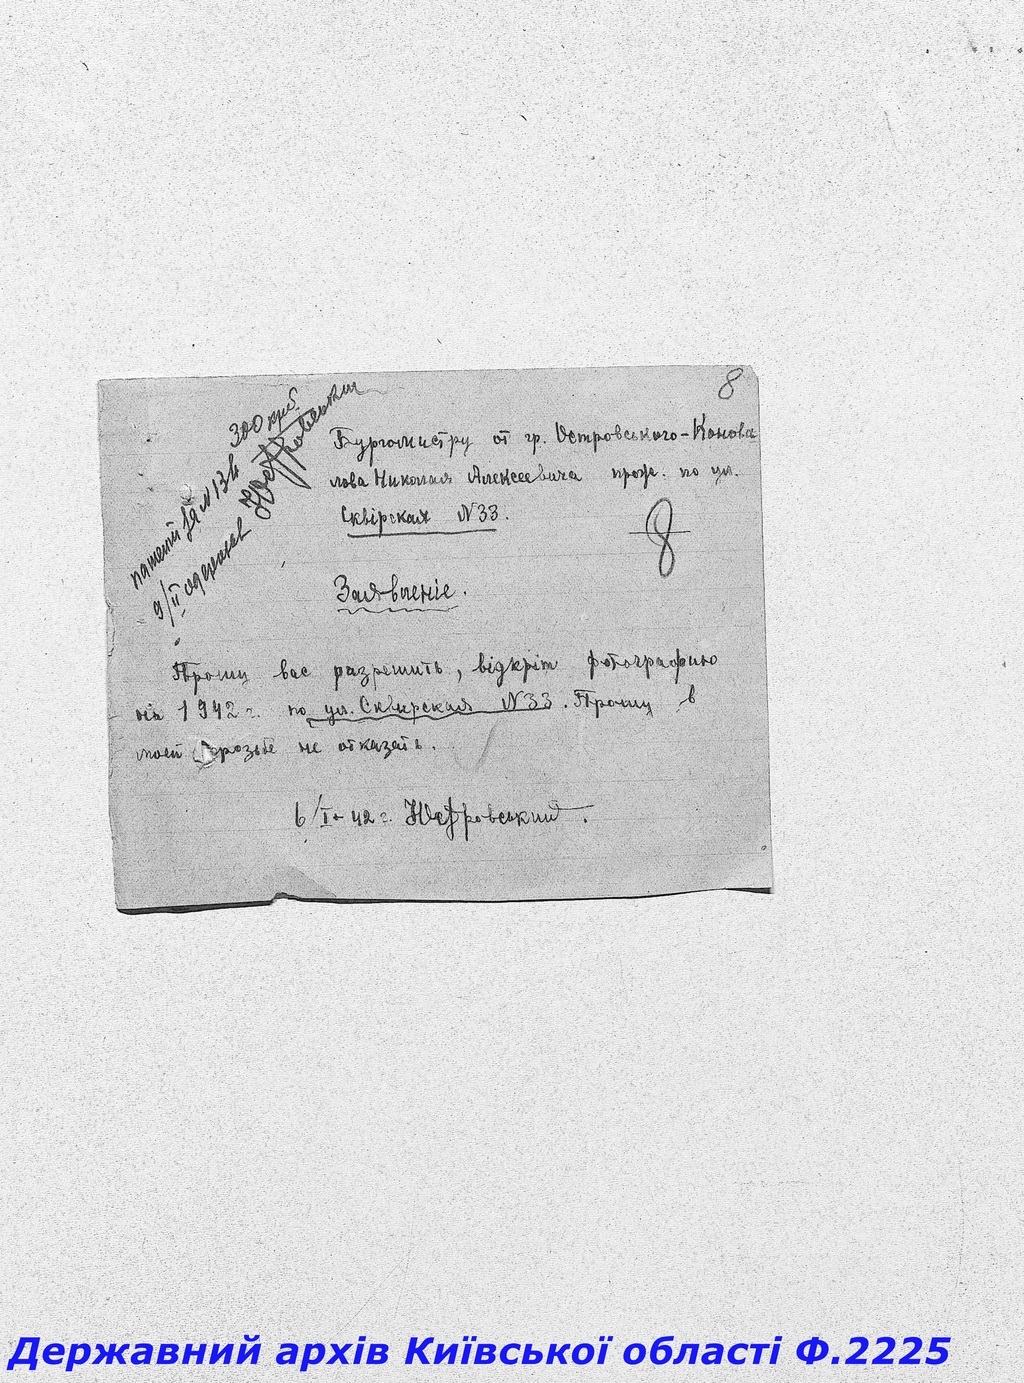 8
300 крб.
патент за № 134
9/II одержав НОстровський
Бургомистру от гр. Островського-Конова
лова Николая Алексеевича прож. по ул.
Сквірская №33.
8
Заявленіе.
Прошу вас разрешить, відкріт фотографию
на 1942 г. по ул. Сквирская №33. Прошу в
моей прозьбе не отказать.
6/I-42 г. НОстровський.
Державний архів Київської області Ф.2225